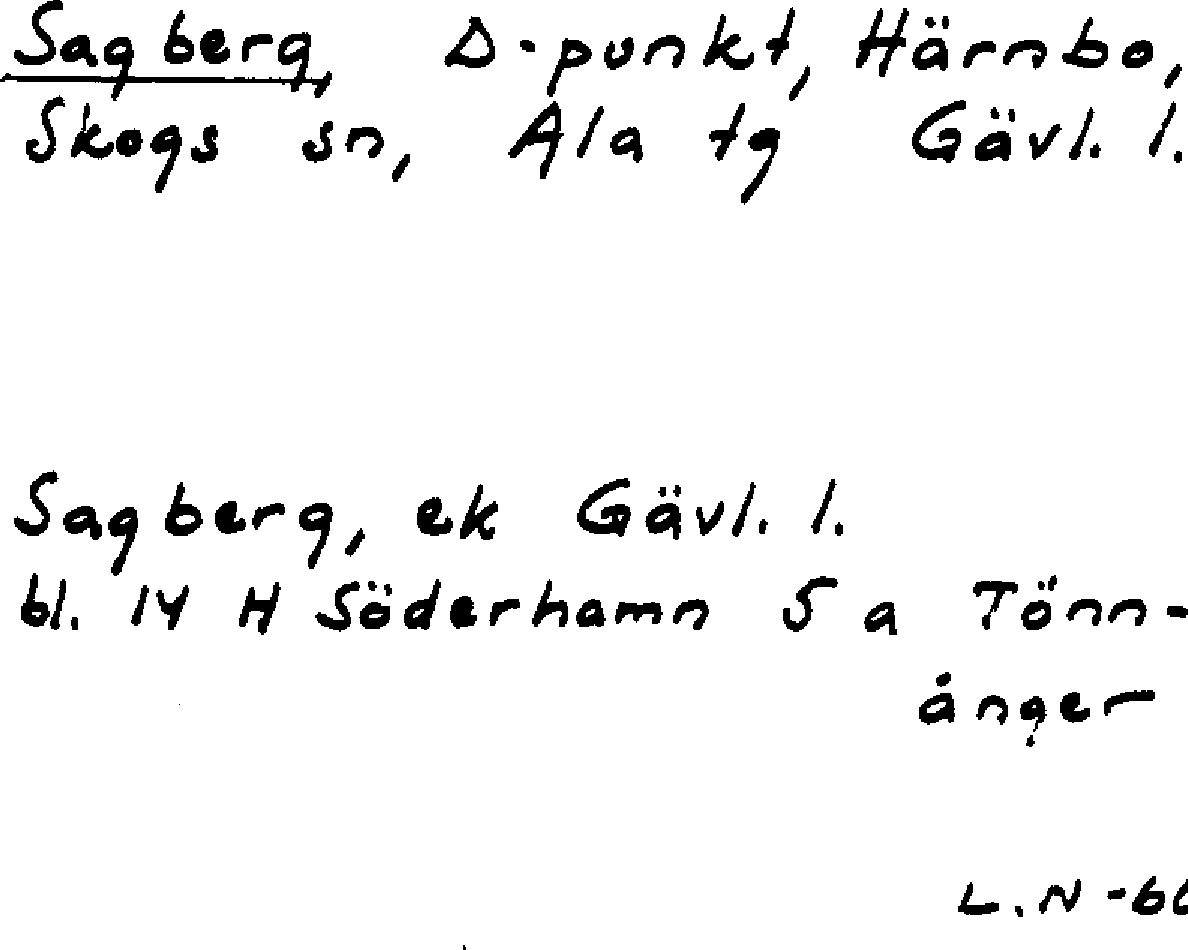 Sagberg, D-punkt, Härnbo,
Skogs sn, Ala tg Gävl. l.
Sagberg, ek Gävl. l.
bl. 14 H Söderhamn 5 a Tönn-
ånger
L.N -66